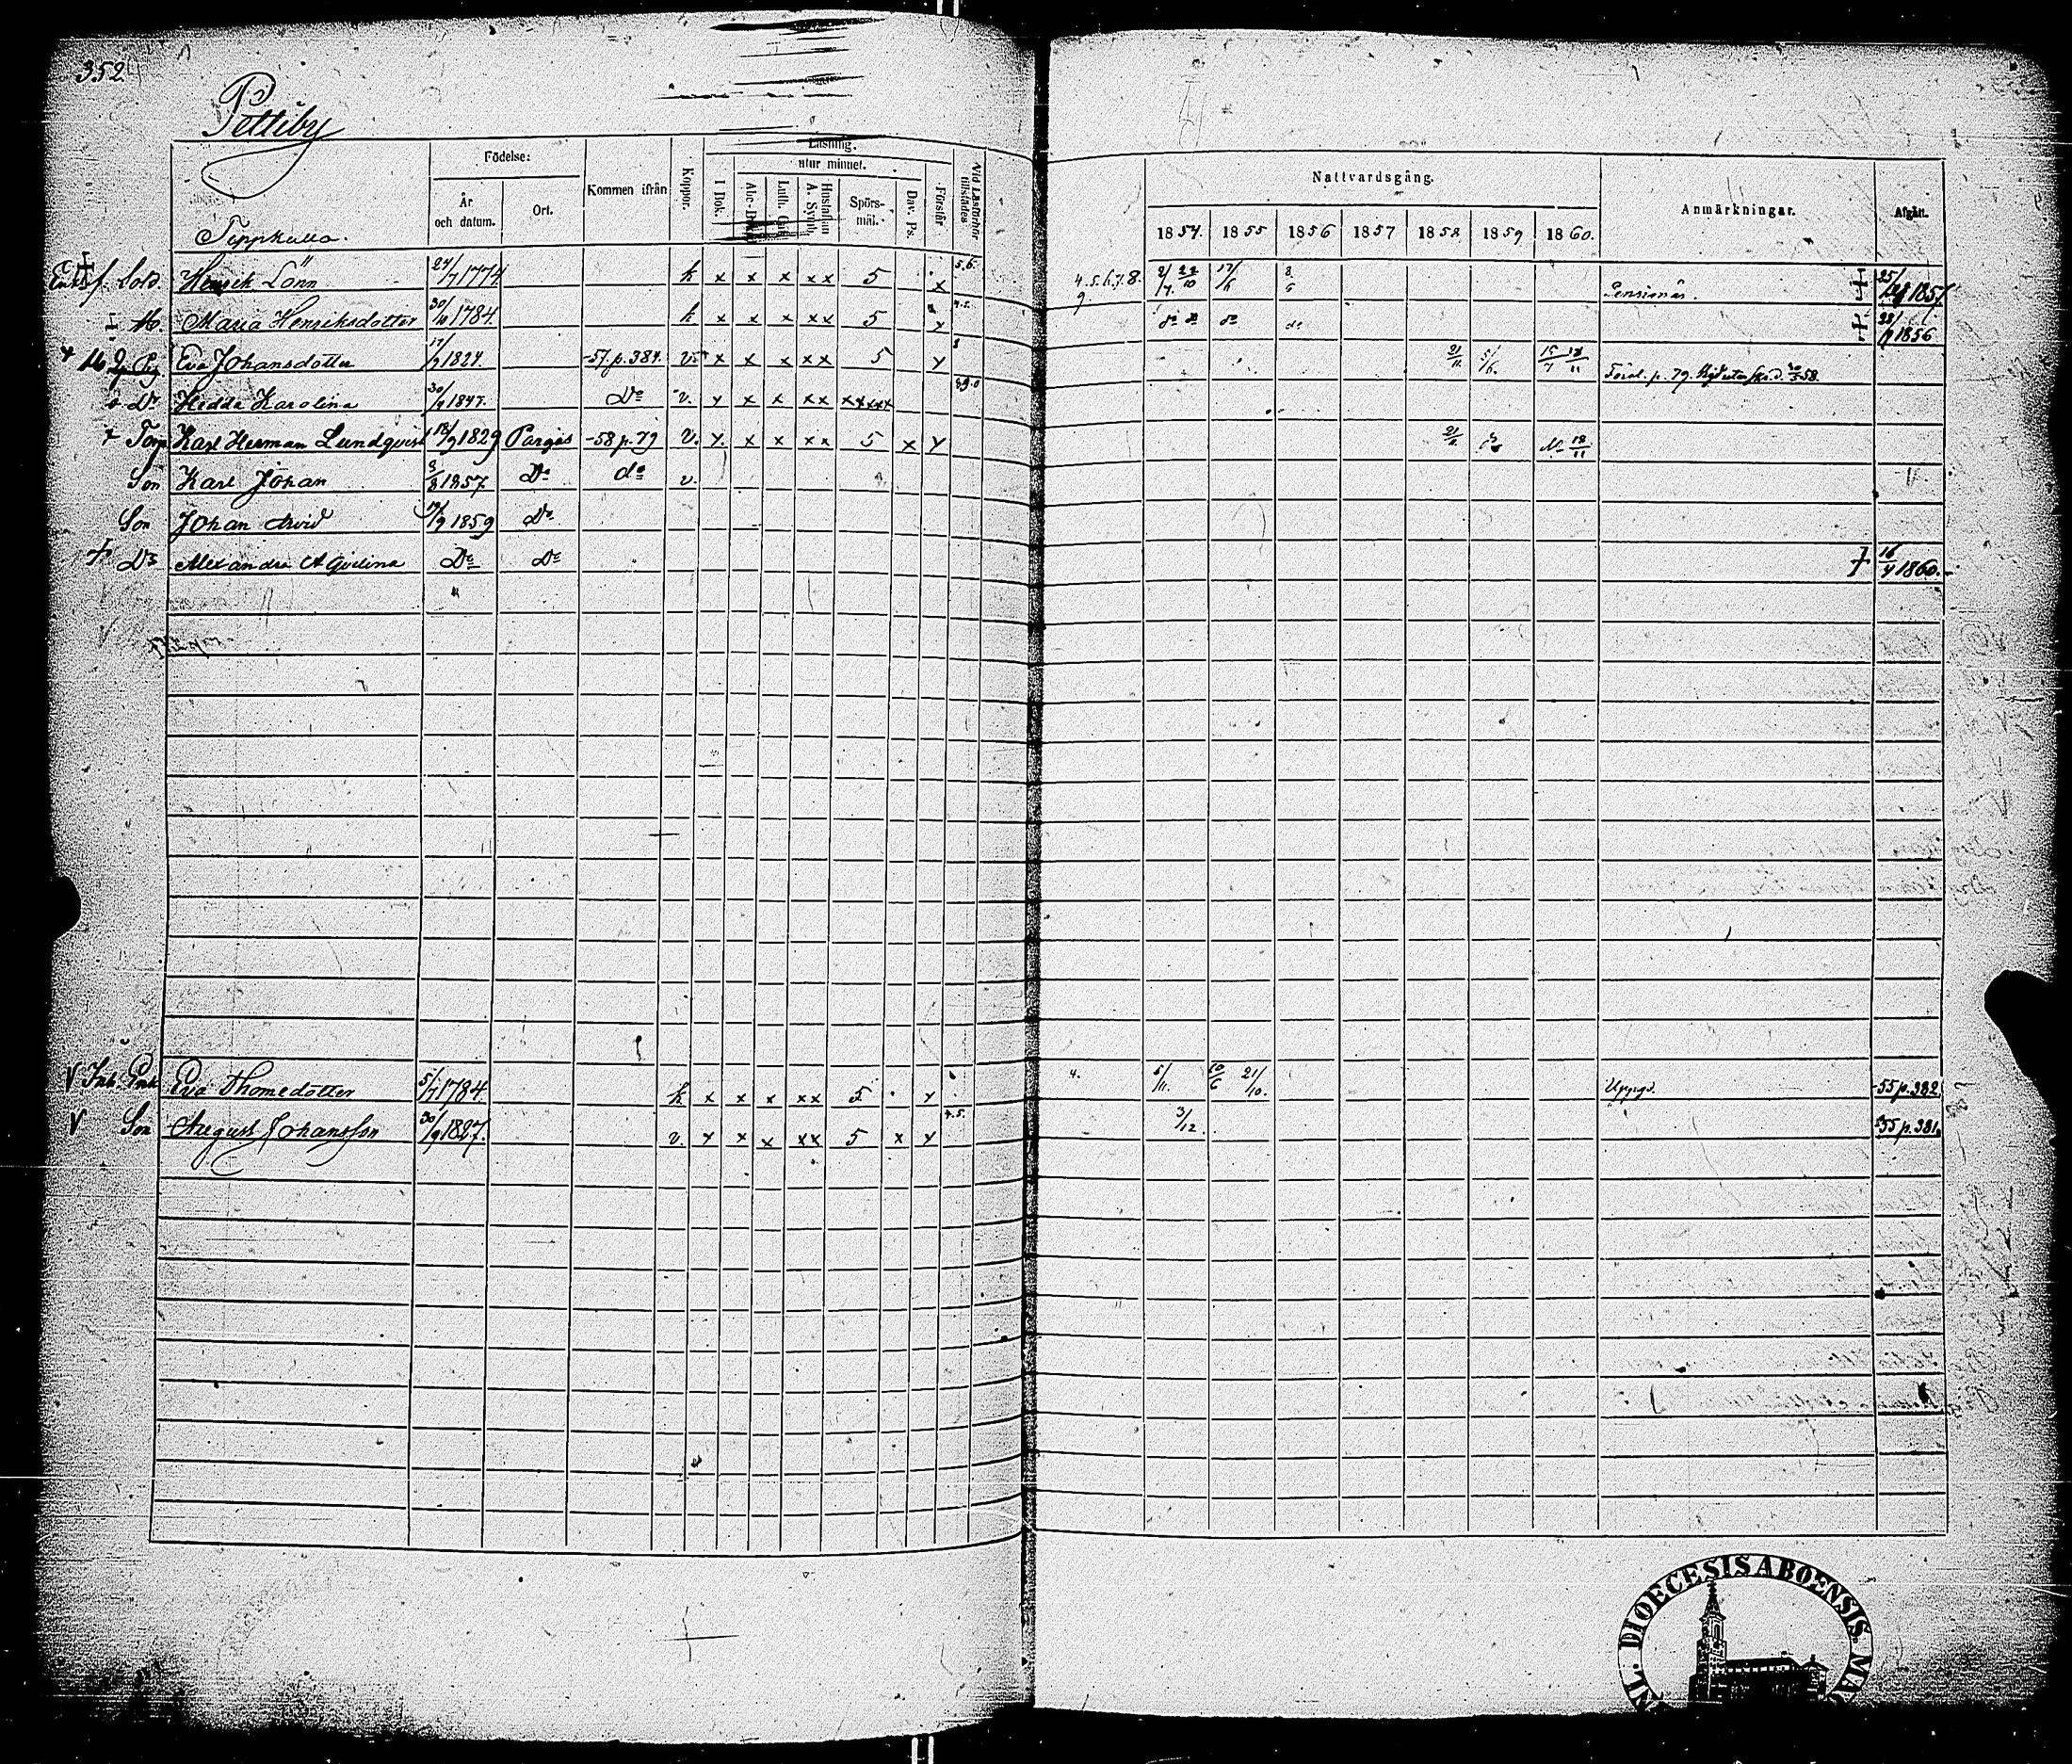 352
Pettiby
Läsning.
Födelse:
utur minnet.
Kommen ifrån
Koppor.
I Bok.
Abc-Bok
Luth. Cat.
Hustaflan A. Symb.
Spörsmål.
Dav. Ps.
Förstår
Vid Läsförhör tillstädes
År och datum.
Ort.
Nattvardsgång.
Anmärkningar.
Afgått.
1854. 1855 1856 1857 1858 1859 1860.
Tippkulla.
f. Sold. Henrik Lönn 24/7 1774 k x x x xx 5 x 5.6. 4.5.6.7.8.9 17/6 8/6 Pensionär. 25/ 1857
Maria Henriksdotter 30/10 1784. k x x x xx 5 x 4.5. do do do 1856
Eva Johansdotter 17/ 1824. -57. p. 384. v. x x x xx 5 x 8 21/11 5/6 15/7 18/11 p. 79. 58.
Dr Hedda Karolina 30/9 1847. Do v. x x x xx xxxxx
Torp Karl Herman Lundqvist 18/9 1829 Pargas -58 p. 79 v. x x x xx 5 x x 21/11 do 18/11
Son Karl Johan 3/8 1857 Do do v.
Son Johan Arvid 14/9 1859 Do
Dr Alexandra Do Do 16/4 1860.
V Inh. Enk. Eva Thomedotter 5/7 1784. k x x x xx 5 x 4. 5/11. 10/6 21/10. Uppgr. -55 p. 382
V Son August Johansson 30/9 1827. v. x x x xx 5 x x 4.5. 3/12. 55 p. 381.
DIOECESIS ABOENSIS